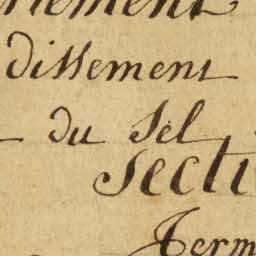 rtement
dissement
du Sel
Secti
Ferm